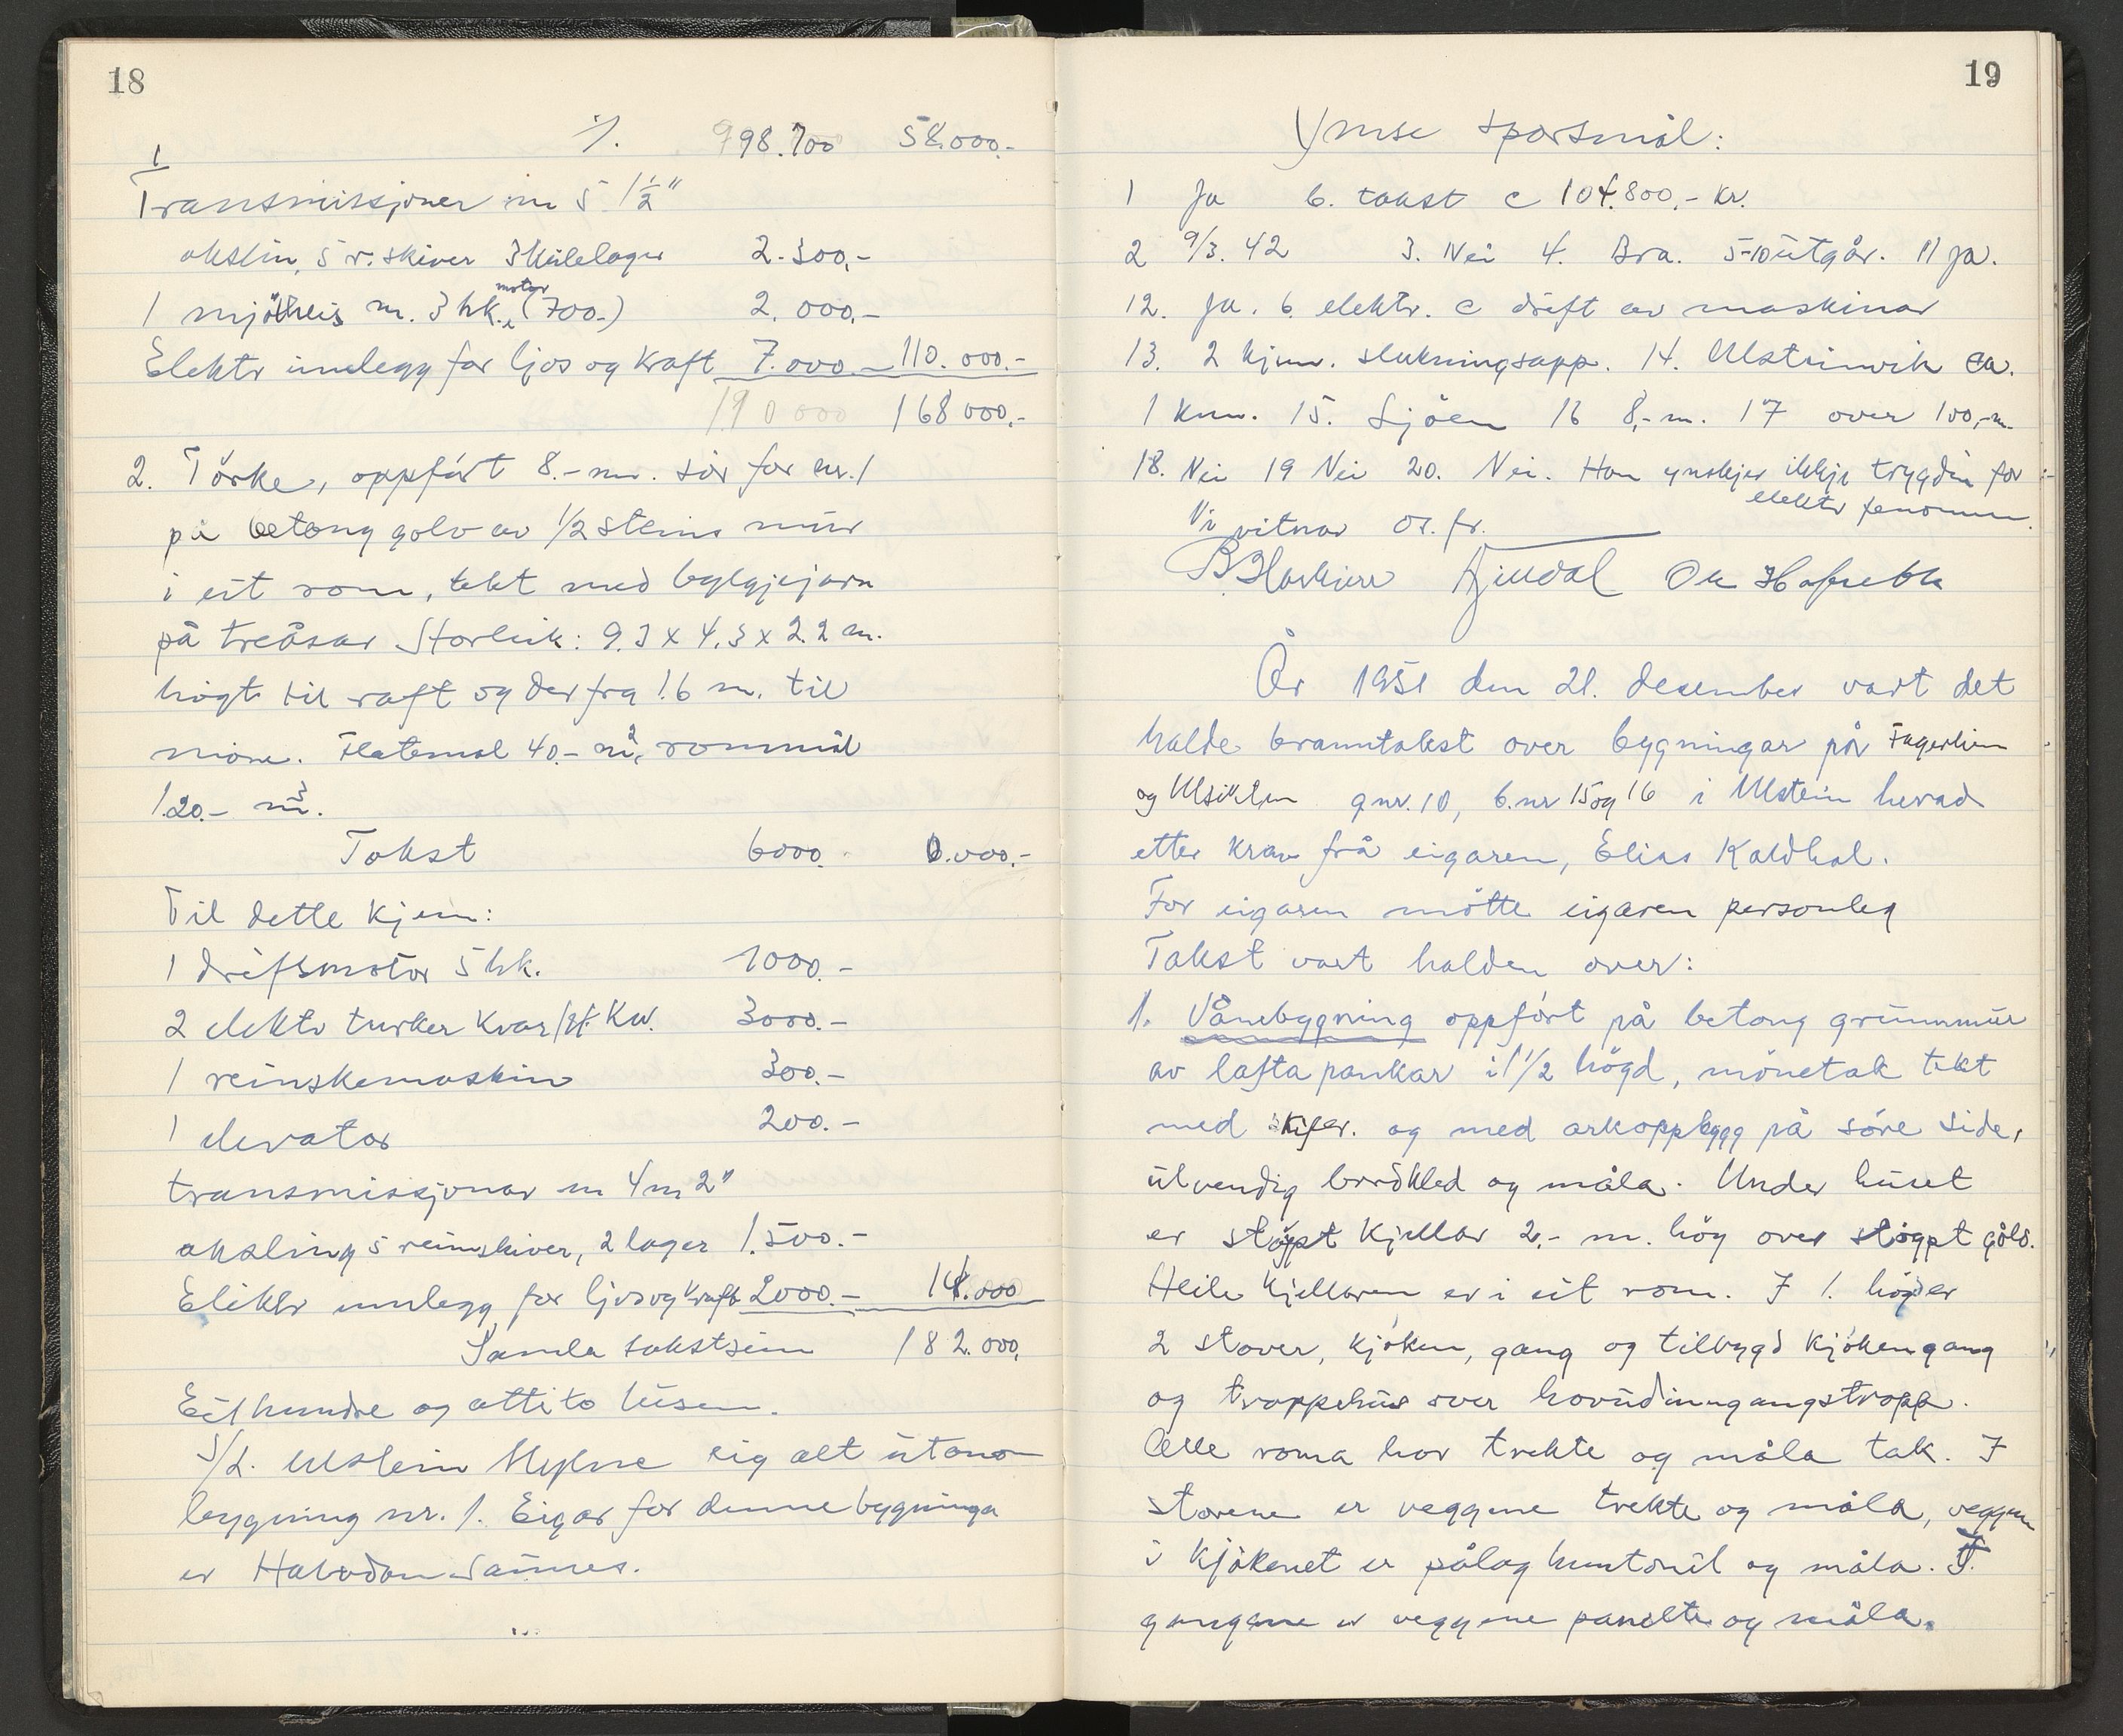 18
·/. 98.700 58.000.-
1
Transmissjoner m 5 1½"
akslin, 5 r. skiver 3 kulelager 2.300,-
1 mjølheis m. 3 hk. motor (700.-) 2.000,-
Elektr innlegg for ljos og kraft 7.000.- 110.000.-
110 000 168 000.-
2. Törke, oppført 8.- m. sør for nr. 1
på betong golv av 1/2 steins mur
i eit rom, tekt med bylgjejarn
på treåsar Storleik: 9.3 x 4.3 x 2.2 m.
högt til raft og derfra 1.6 m. til
møne. Flatemål 40.- m², rommål
120.- m³.
Takst 6000. 6.000.-
Til dette kjem:
1 driftsmotor 5 hk. 1000.-
2 elektr turker kvar KW. 3000.-
1 reinskemaskin 300.-
1 elevator 200.-
transmissjonar m 4 m 2"
aksling 5 reimskiver, 2 lager 1.500.-
Elektr innlegg for ljos og kraft 2000.- 14.000
Samla takstsum 182.000,
Eithundre og åttito tusen.
S/L. Ulstein Mylne eig alt utanom
bygning nr. 1. Eigar for denne bygninga
er Halvdan Saunes.
19
Ymse spørsmål:
1 Ja b. takst c 104.800,- kr.
2 9/3. 42 3. Nei 4. Bra. 5-10 utgår. 11 Ja.
12. Ja. b. elektr. c drift av maskinar
13. 2 kjem. slukningsapp. 14. Ulsteinvik ca.
1 km. 15. Sjöen 16 8,- m. 17 over 100,- m.
18. Nei 19 Nei 20. Nei. Han ynskjer ikkje trygdin for
elektr fenomen.
Vi vitnar os. fr.
År 1951 den 21. desember vart det
halde branntakst over bygningar på Fagerheim
og gnr. 10, b.nr 15 og 16 i Ulstein herad
etter krav frå eigaren, Elias Kaldhol.
For eigaren møtte eigaren personleg
Takst vart halden over:
1. Vånebygning oppført på betong grunnmur
av lafta pankar i 1 1/2 högd, mönetak tekt
med skifer. og med arkoppbygg på søre side,
utvendig bordkled og måla. Under huset
er støypt kjellar 2,- m. høg over støypt golv.
Heile kjellaren er i eit rom. I 1. høgd er
2 stover, kjøken, gang og tilbygd kjøkengang
og trappehus over hovudinngangstrapp.
Alle roma har trekte og måla tak. I
stovene er veggene trekte og måla, veggene
i kjøkenet er pålag huntonit og måla. I
gangane er veggene panelte og måla.